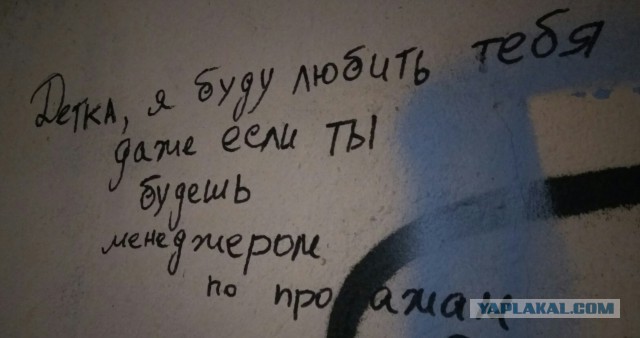 Детка, я буду любить тебя
даже если ты
будешь
менеджером
по продажам
YAPLAKAL.COM